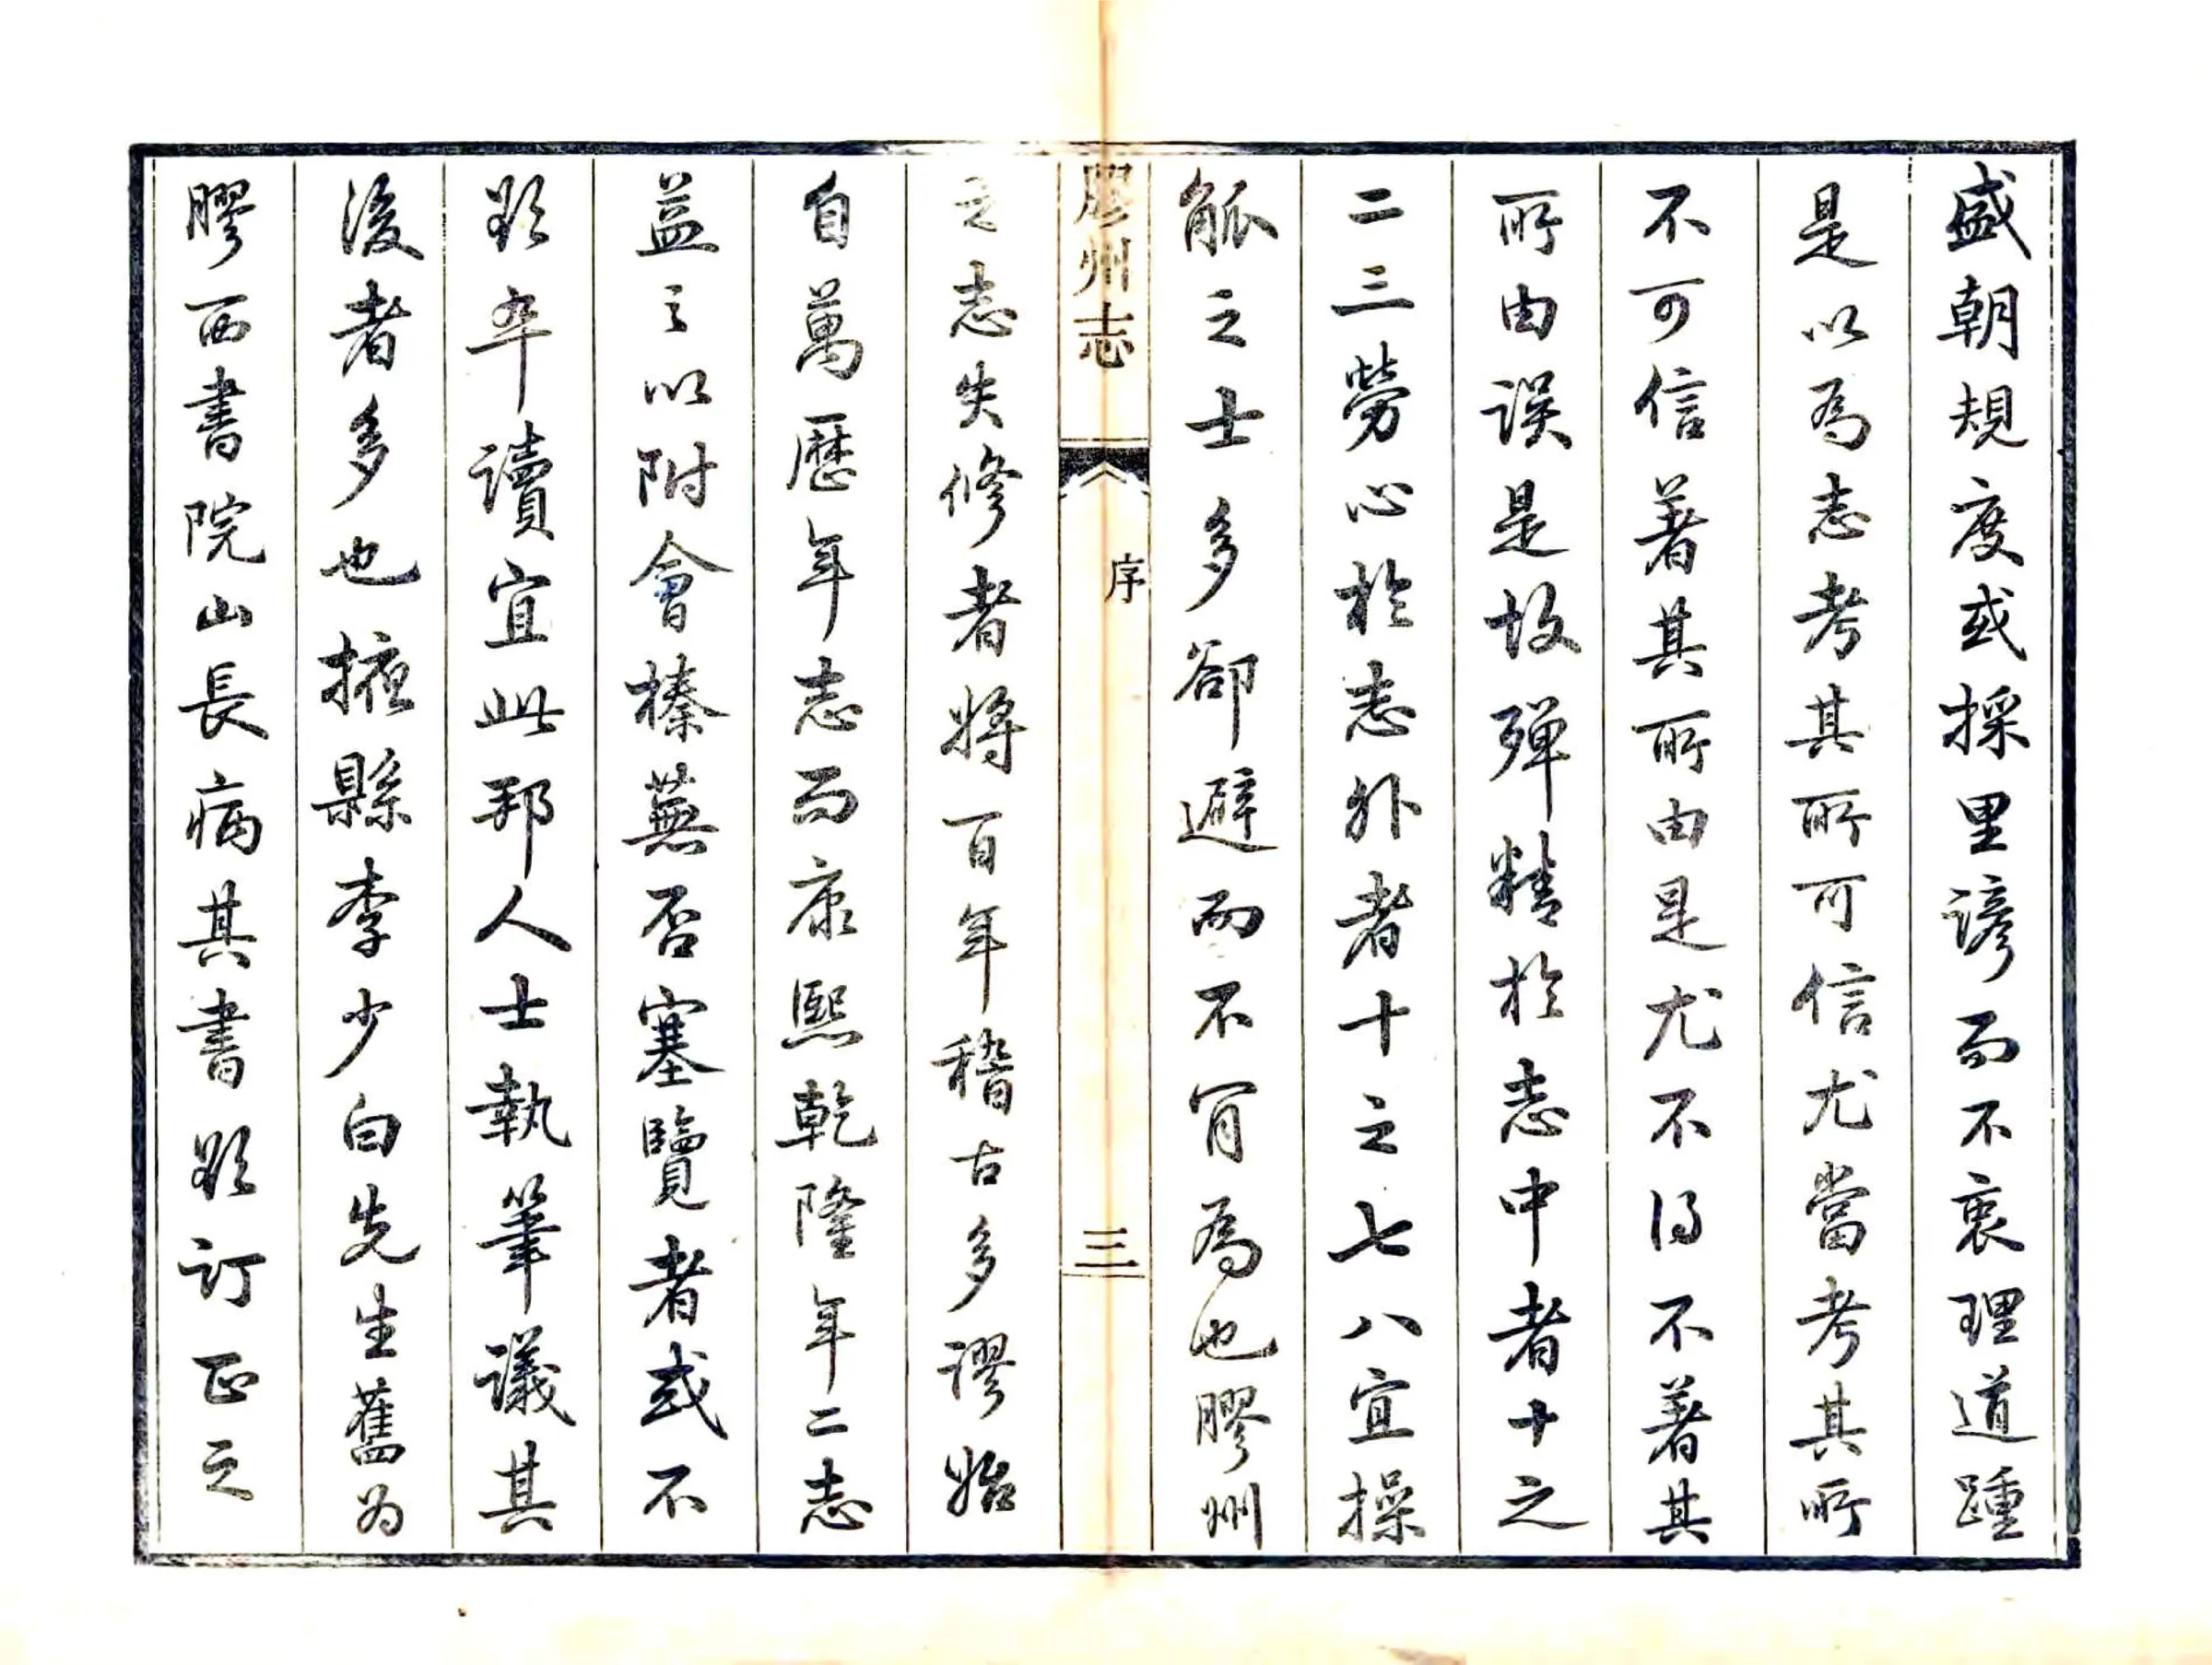 盛朝規度或採里諺而不衷理道踵
是以為志考其所可信尤當考其所
不可信著其所由是尤不得不著其
所由誤是故殫精於志中者十之
二三勞心於志外者十之七八宜操
觚之士多卻避而不肯為也膠州
膠州志
序
三
之志失修者將百年稽古多謬始
自萬歷年志而康熙乾隆年二志
益之以附會榛蕪否塞覽者或不
能卒讀宜此邦人士執筆議其
後者多也掖縣李少白先生舊為
膠西書院山長病其書欲訂正之